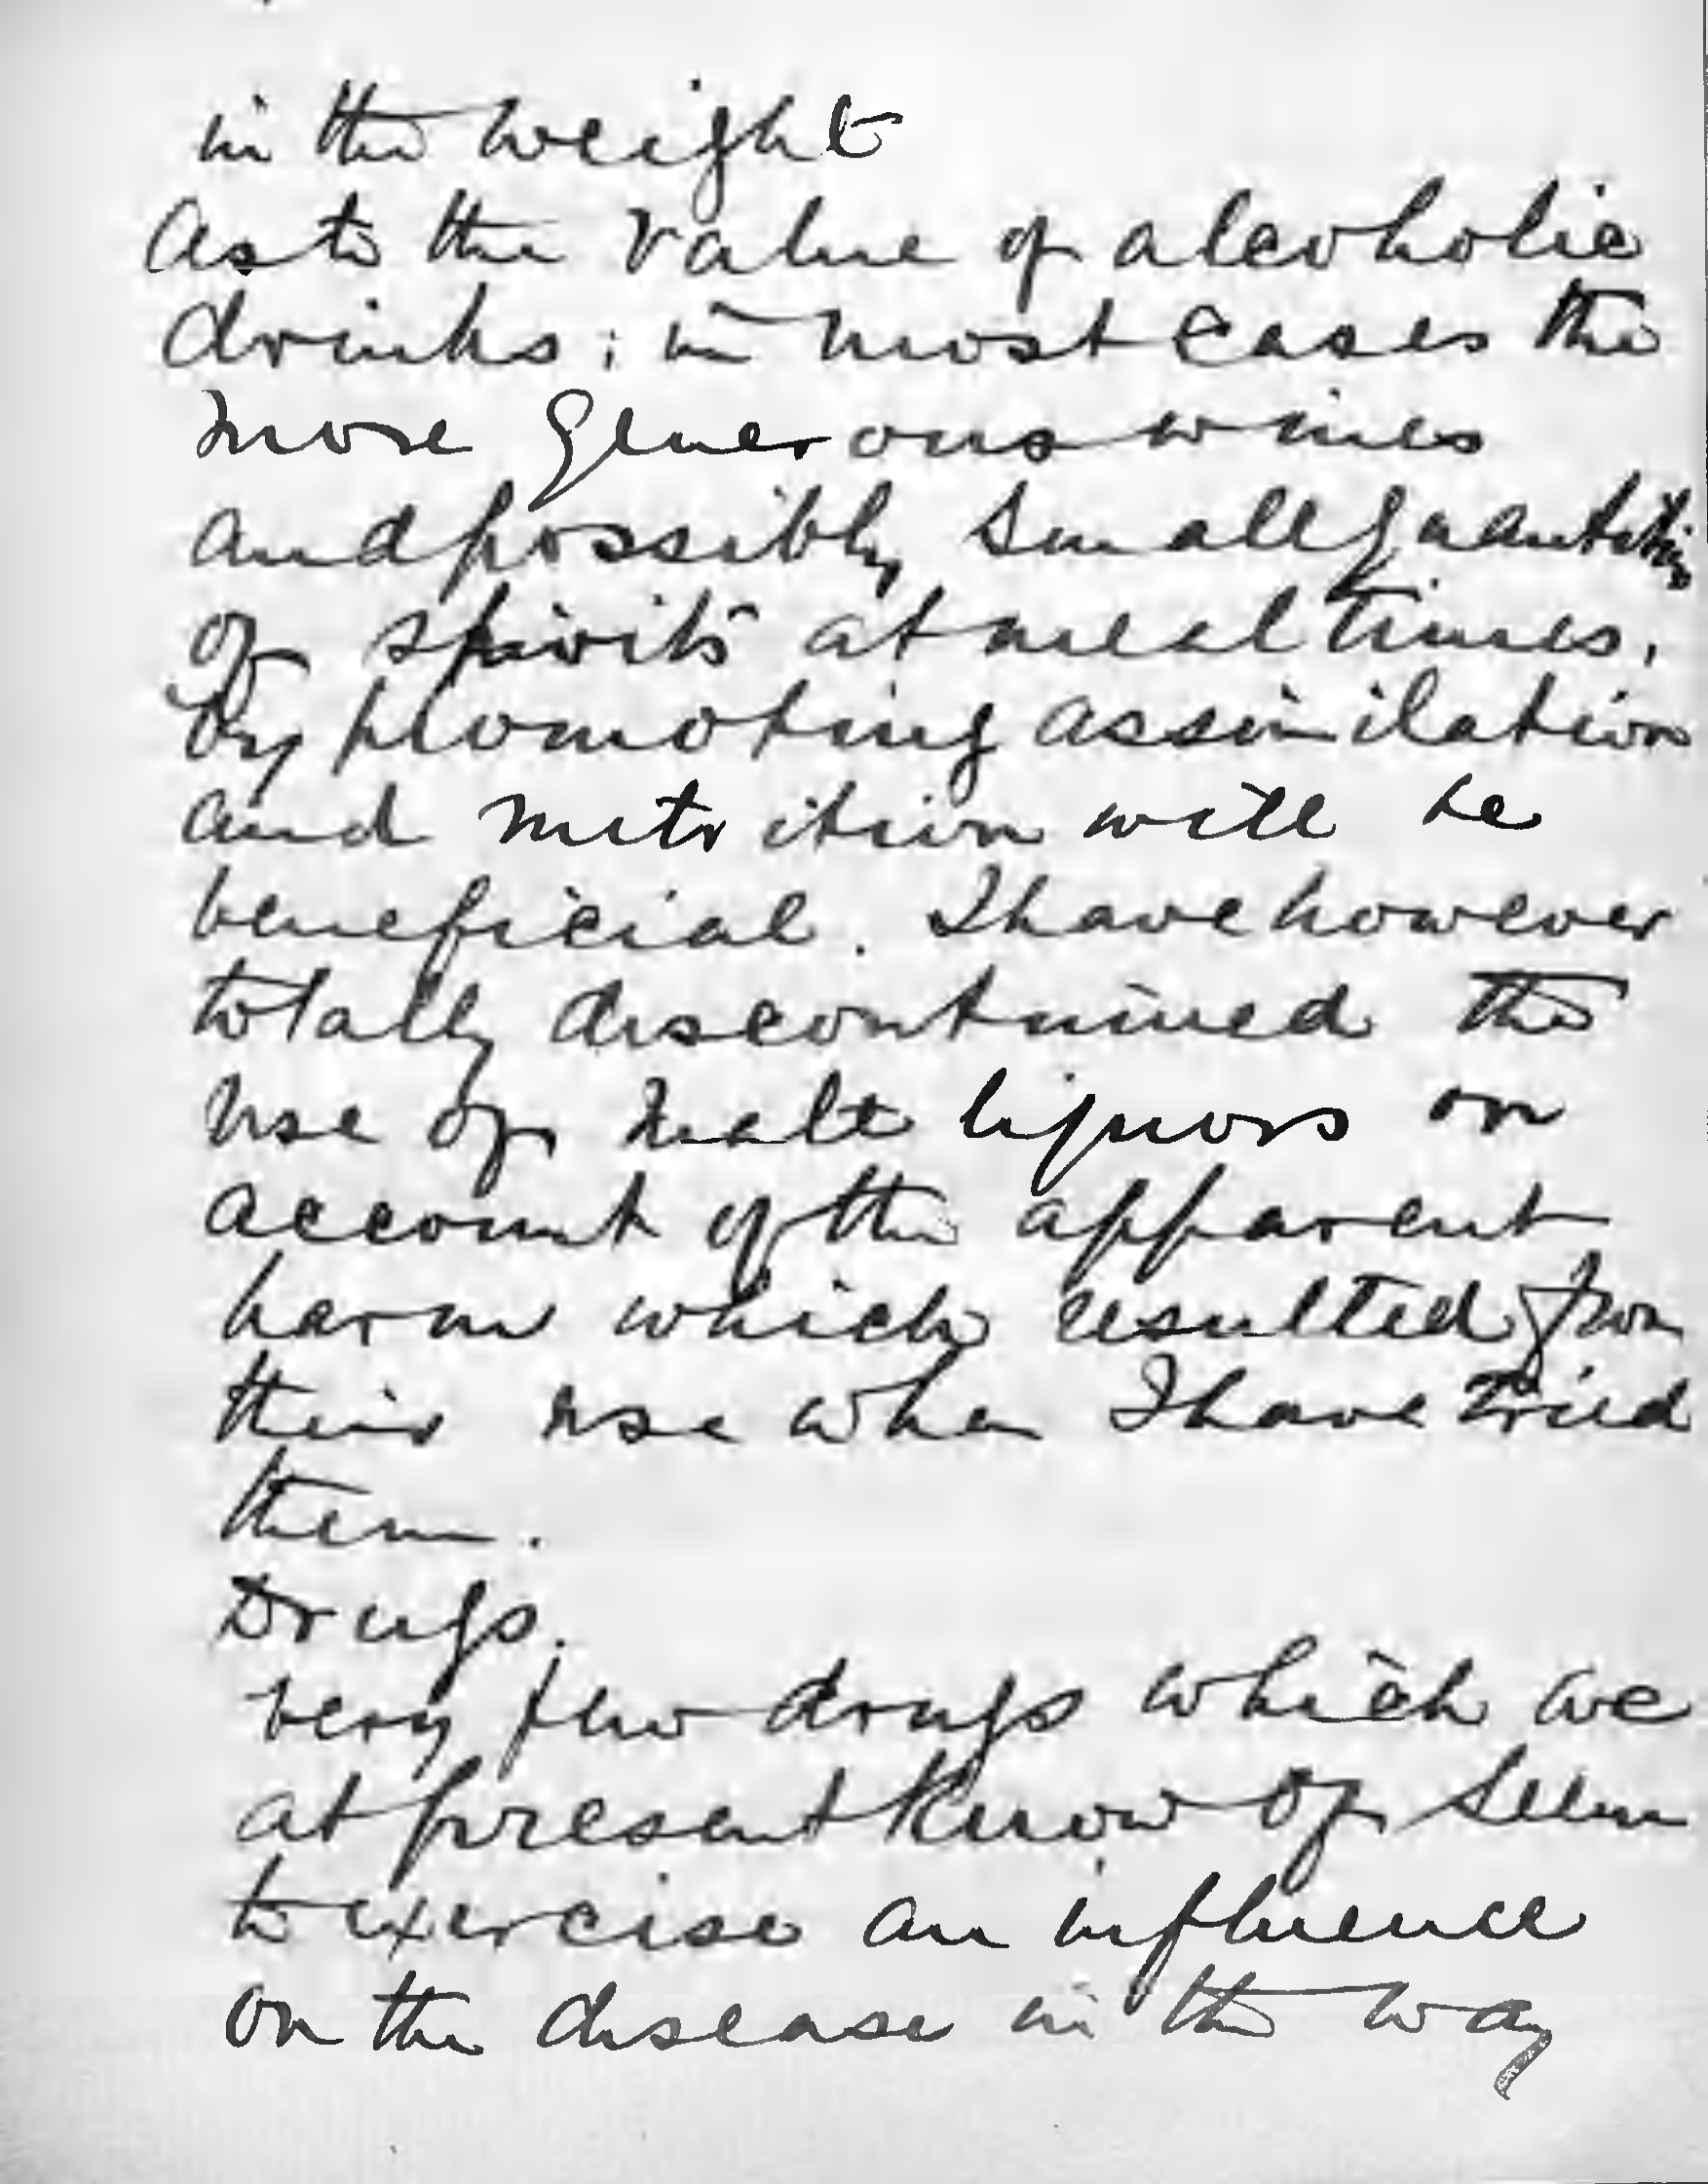 in the weight
As to the value of alcoholic
drinks; in most cases the
more generous wines
and possibly small quantities
of spirits at meal times,
by promoting assimilation
and nutrition will be
beneficial. I have however
totally discontinued the
use of malt liquors on
account of the apparent
harm which resulted from
their use when I have tried
them.
Drugs.
very few drugs which we
at present know of seem
to exercise an influence
on the disease in the way